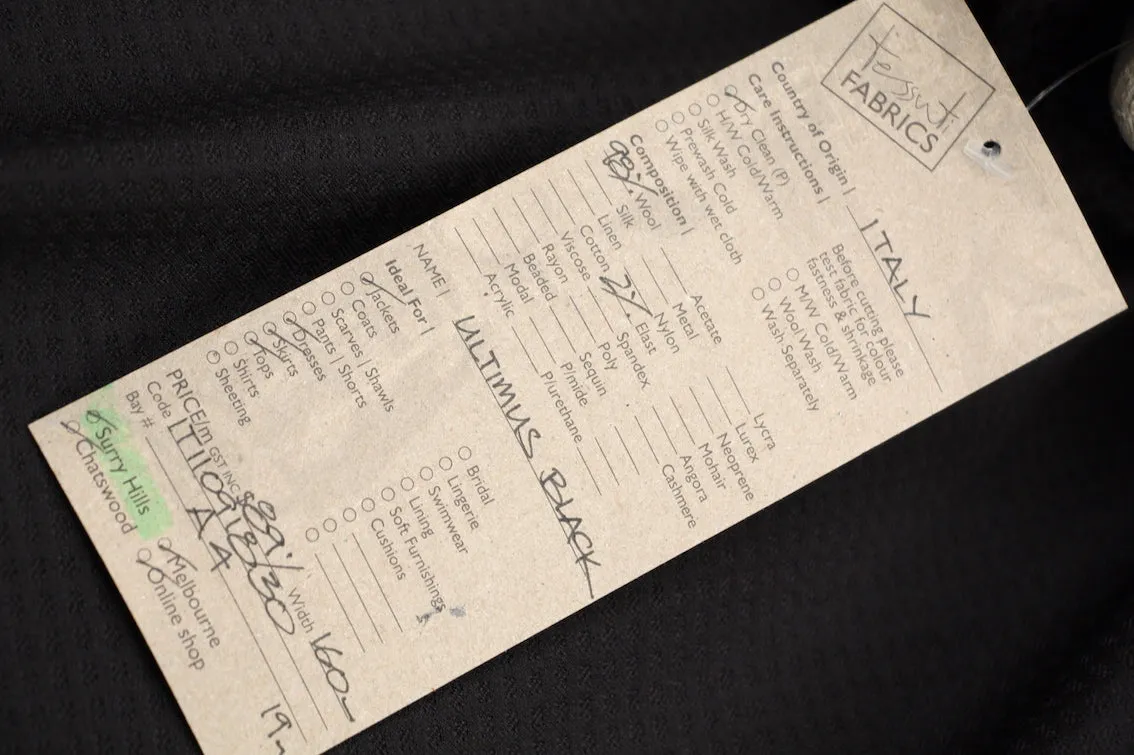 tessuti
FABRICS
Country of Origin | ITALY
Care Instructions |
Dry Clean (P)
H/W Cold/Warm
Silk Wash
Prewash Cold
Wipe with wet cloth
Before cutting please
test fabric for colour
fastness & shrinkage
M/W Cold/Warm
Wool Wash
Wash Separately
Composition |
98% Wool
Silk
Linen
Cotton
Viscose
Rayon
Beaded
Modal
Acrylic
Acetate
Metal
Nylon
2% Elast
Spandex
Poly
Sequin
P/mide
P/urethane
Lycra
Lurex
Neoprene
Mohair
Angora
Cashmere
NAME | ULTIMUS BLACK
Ideal For |
Jackets
Coats
Scarves | Shawls
Pants | Shorts
Dresses
Skirts
Tops
Shirts
Sheeting
Bridal
Lingerie
Swimwear
Lining
Soft Furnishings
Cushions
PRICE/m GST INC $89 Width 160
Code
Bay # A4
Surry Hills
Chatswood
Melbourne
Online shop